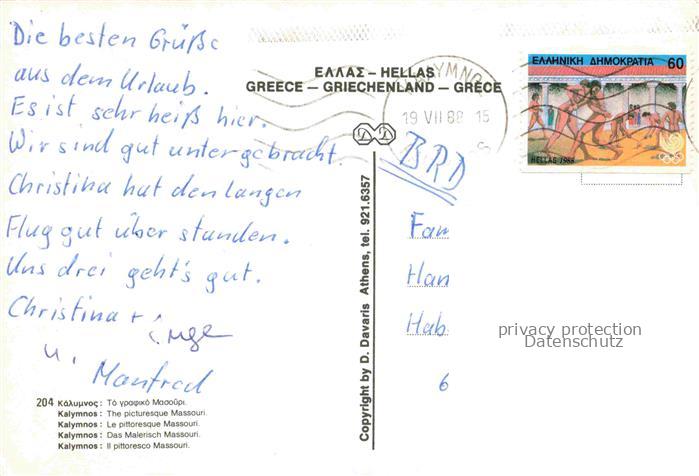 Die besten Grüße
aus dem Urlaub.
Es ist sehr heiß hier.
Wir sind gut untergebracht.
Christina hat den langen
Flug gut über standen.
Uns drei geht's gut.
Christina +
u.
Manfred
204 Κάλυμνος : Τό γραφικό Μασοῦρι.
Kalymnos : The picturesque Massouri.
Kalymnos : Le pittoresque Massouri.
Kalymnos : Das Malerisch Massouri.
Kalymnos : Il pittoresco Massouri.
ΕΛΛΑΣ – HELLAS
GREECE – GRIECHENLAND – GRÈCE
Copyright by D. Davaris Athens, tel. 921.6357
19 VII 88 15
ΕΛΛΗΝΙΚΗ ΔΗΜΟΚΡΑΤΙΑ 60
HELLAS 1988
BRD
Fam
Han
Hab
6
privacy protection
Datenschutz